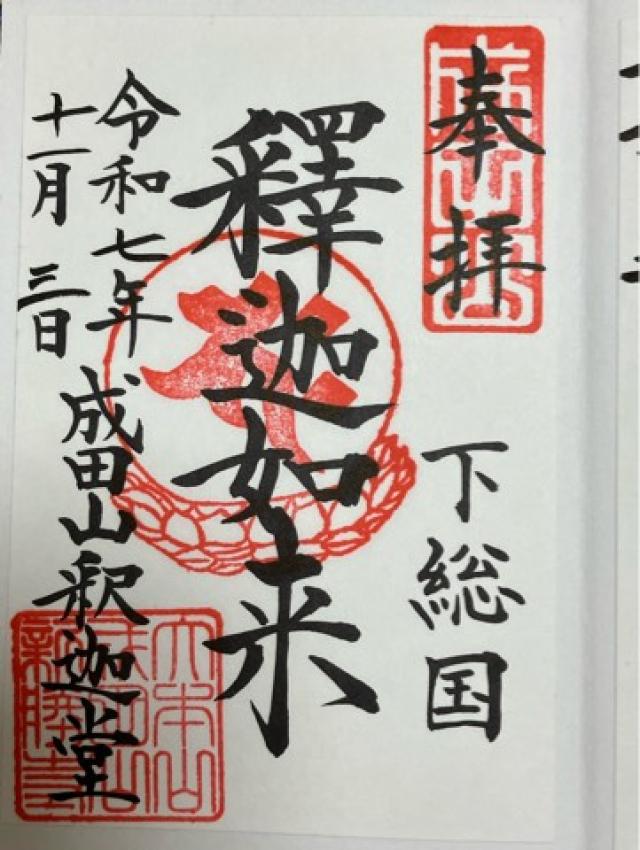 奉拝
下総国
釋迦如来
令和七年
十一月三日
成田山釈迦堂
大本山
成田山
新勝寺